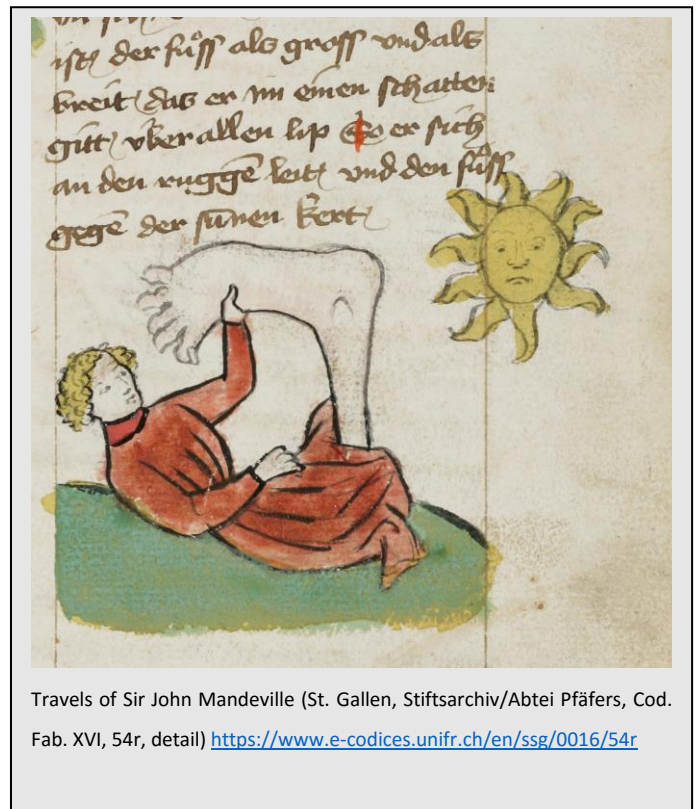 ist der fůss als gross und als
breit das er im einen schatten
gitt vber allen lip So er sich
an den ruggē leit und den fůss
gegē der sūnen kert
Travels of Sir John Mandeville (St. Gallen, Stiftsarchiv/Abtei Pfäfers, Cod.
Fab. XVI, 54r, detail) https://www.e-codices.unifr.ch/en/ssg/0016/54r